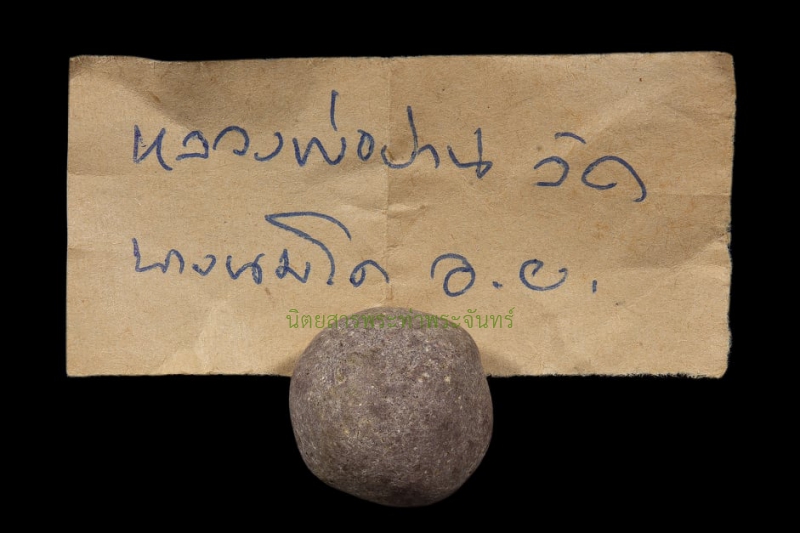 หลวงพ่อปาน วัด
บางนมโค อ.ย.
นิตยสารพระท่าพระจันทร์